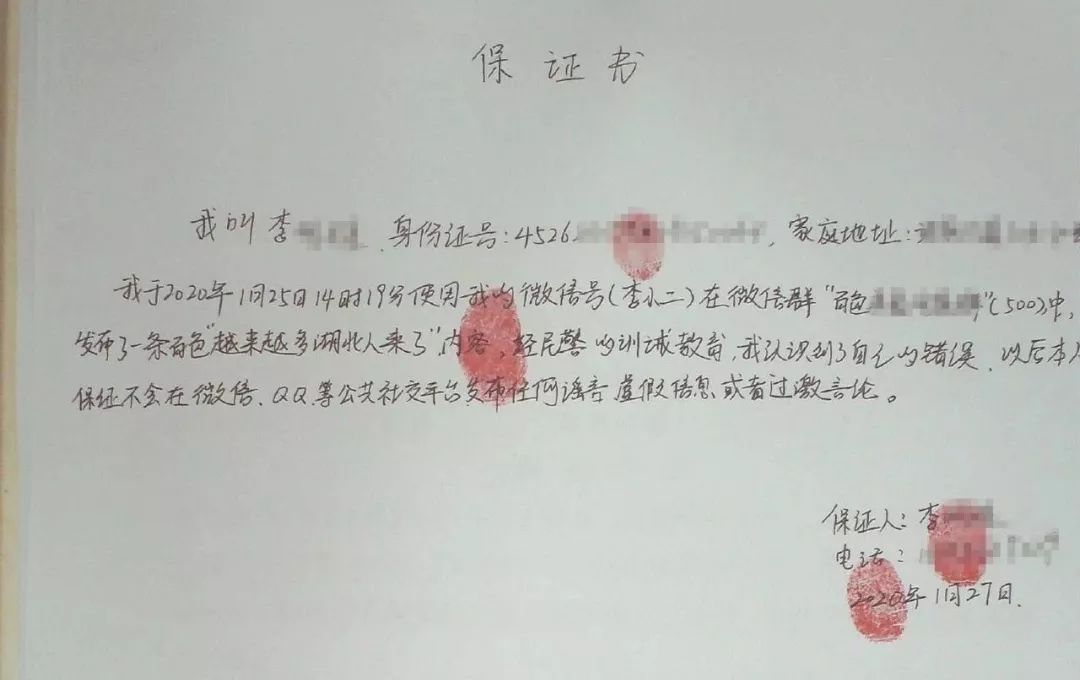 保证书
我叫李 身份证号:4526 , 家庭地址:
我于2020年1月25日14时19分使用我的微信号(李小二)在微信群"百色 "(500)中,
发布了一条百色"越来越多湖北人来了"内容,经民警的训诫教育,我认识到了自己的错误,以后本人
保证不会在微信、QQ等公共社交平台发布任何谣言虚假信息或者过激言论。
保证人:李
电话:
2020年1月27日.